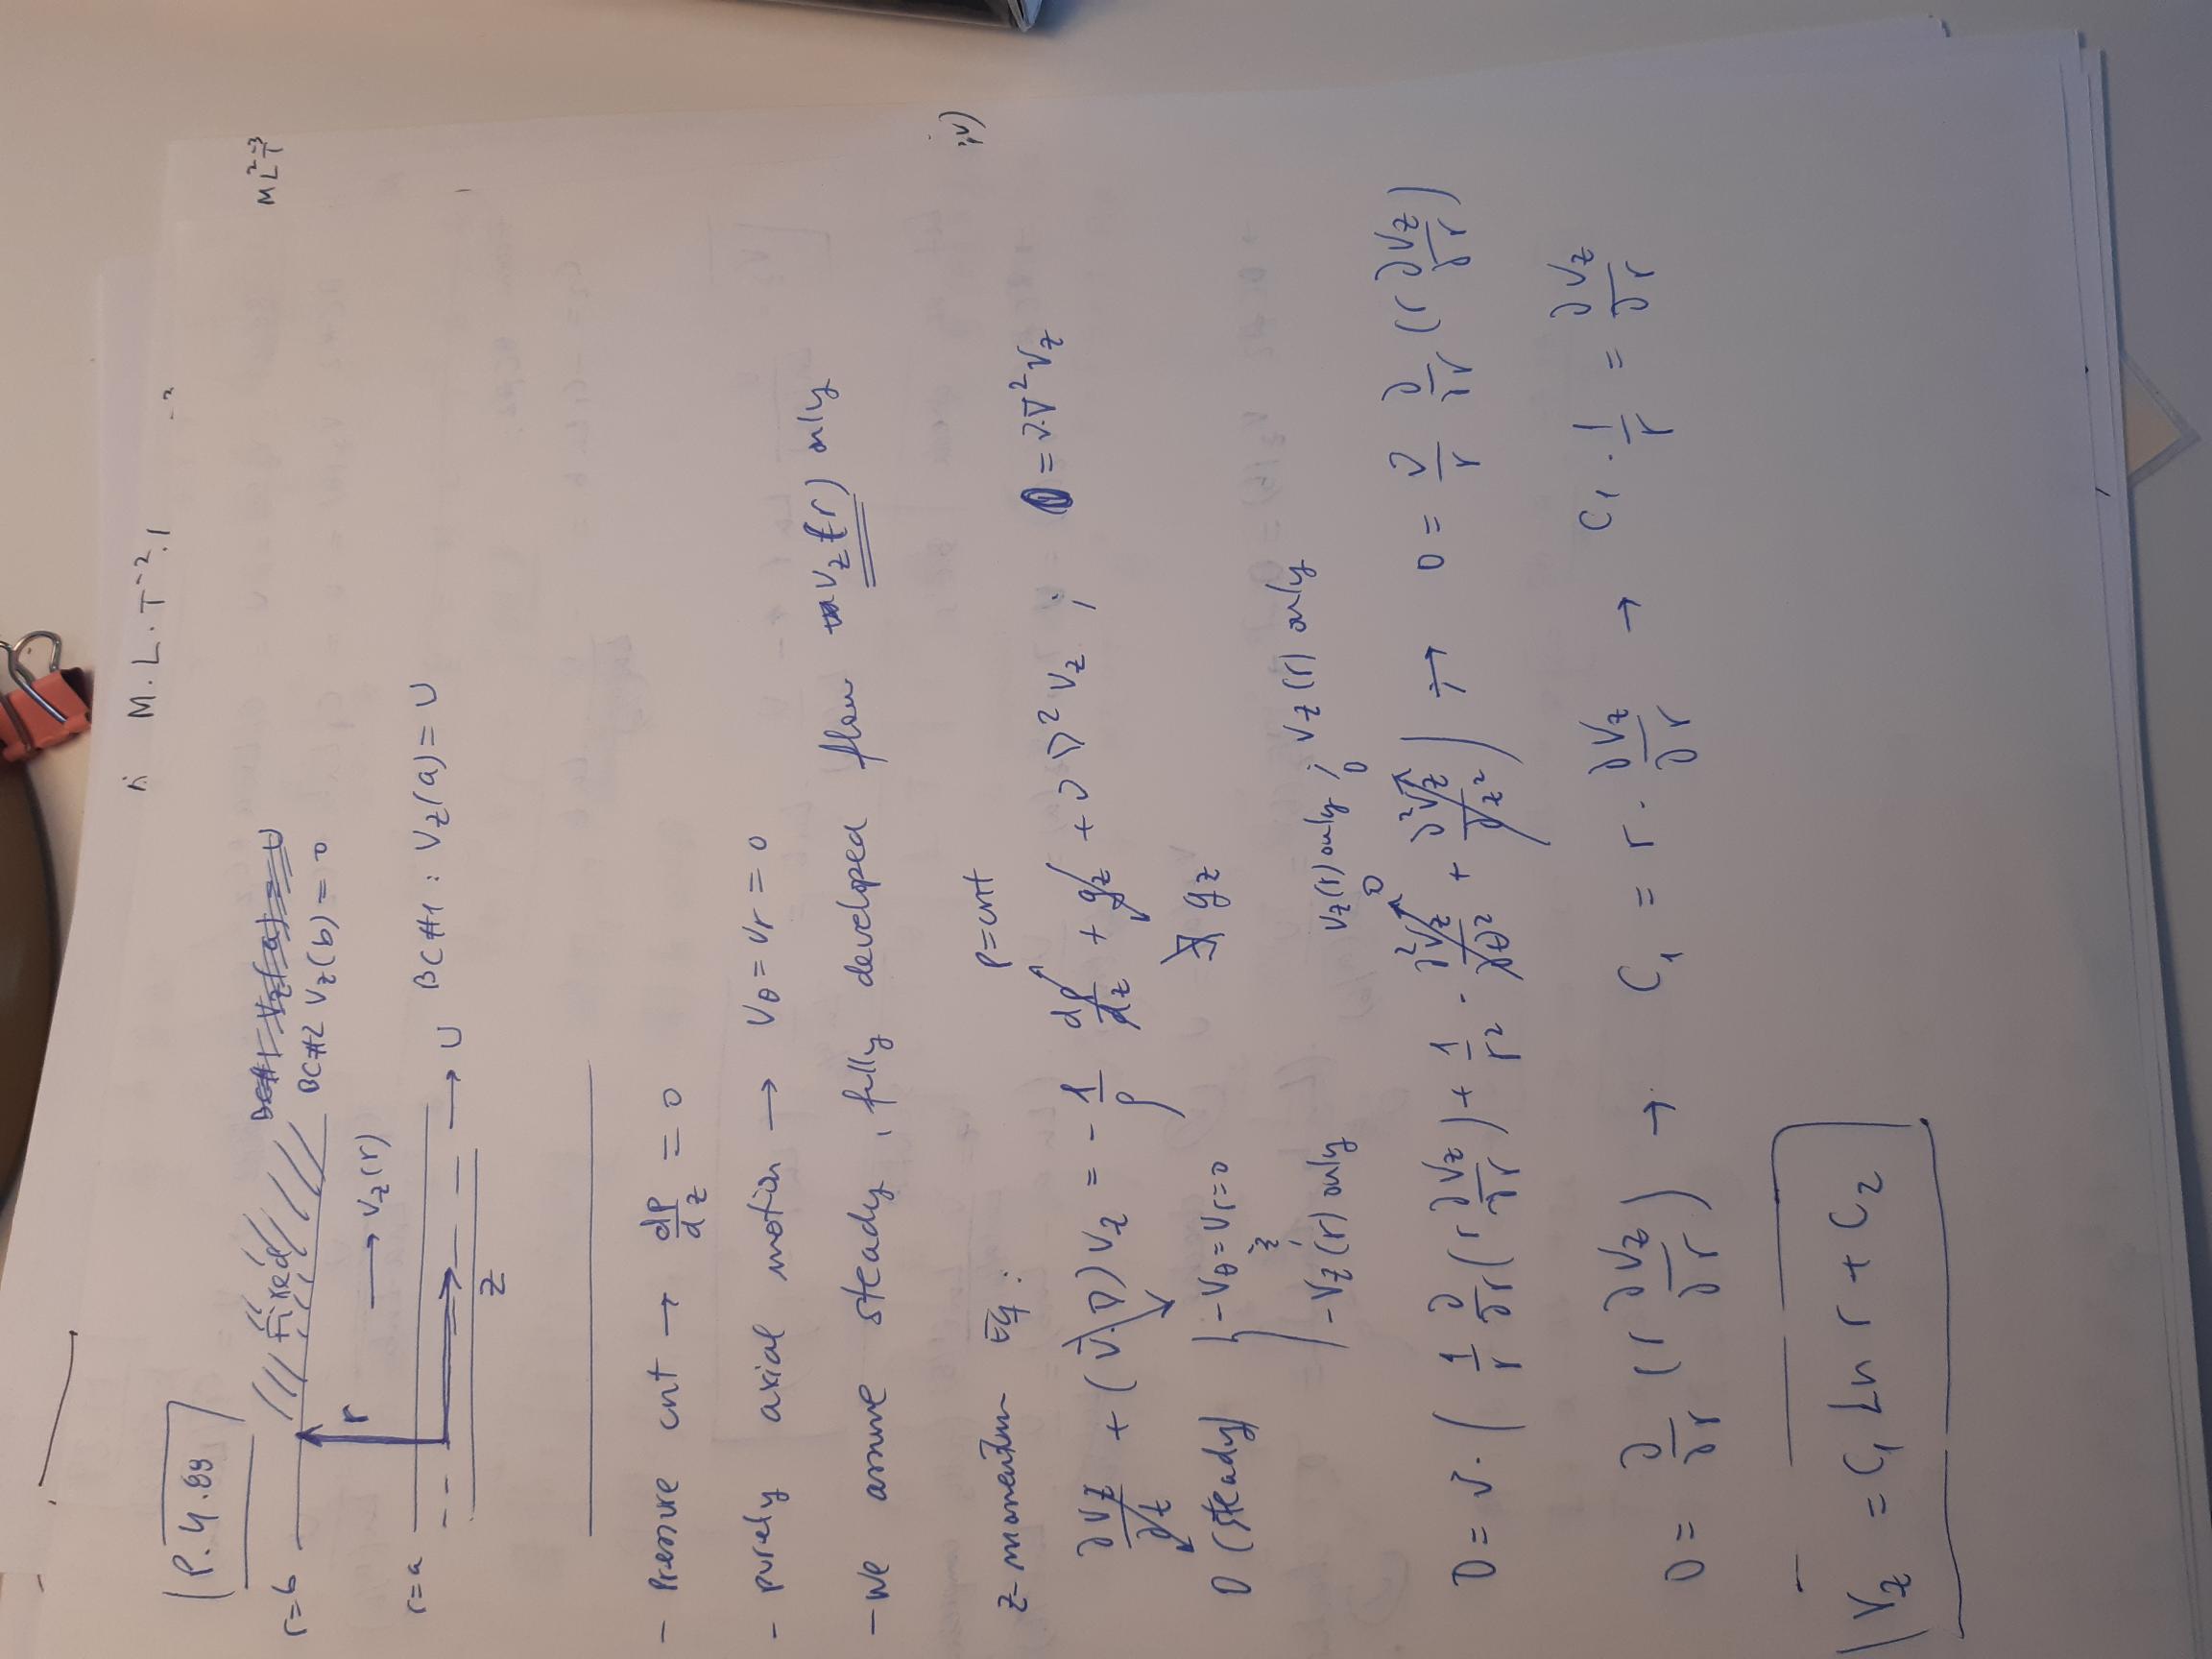 M.L.T⁻².1
P.4.89
ML²T⁻³
Fixed
r=b
BC#1 Vz(a) = U
BC#2 Vz(b) = 0
r
→ Vz(r)
r=a
→ U
BC#1 : Vz(a) = U
z
- Pressure cnt → dp/dz = 0
- purely axial motion → Vθ = Vr = 0
- We assume steady, fully developed flow Vz(r) only
z-momentum Eq :
p=cnt
∂Vz/∂t + (V·∇)Vz = - 1/ρ dp/dz + gz + ν∇²Vz ; 0 = ν·∇²Vz
0 (steady)
- Vθ = Vr = 0
∄ gz
&
- Vz(r) only
Vz(r) only ; Vz(r) only
0 0
0 = ν·( 1/r ∂/∂r (r ∂Vz/∂r) + 1/r² · ∂²Vz/∂θ² + ∂²Vz/∂z² ) ; → 0 = ν/r ∂/∂r (r ∂Vz/∂r)
0 = ∂/∂r (r ∂Vz/∂r) → C₁ = r · ∂Vz/∂r → C₁ · 1/r = ∂Vz/∂r
Vz = C₁ Ln r + C₂